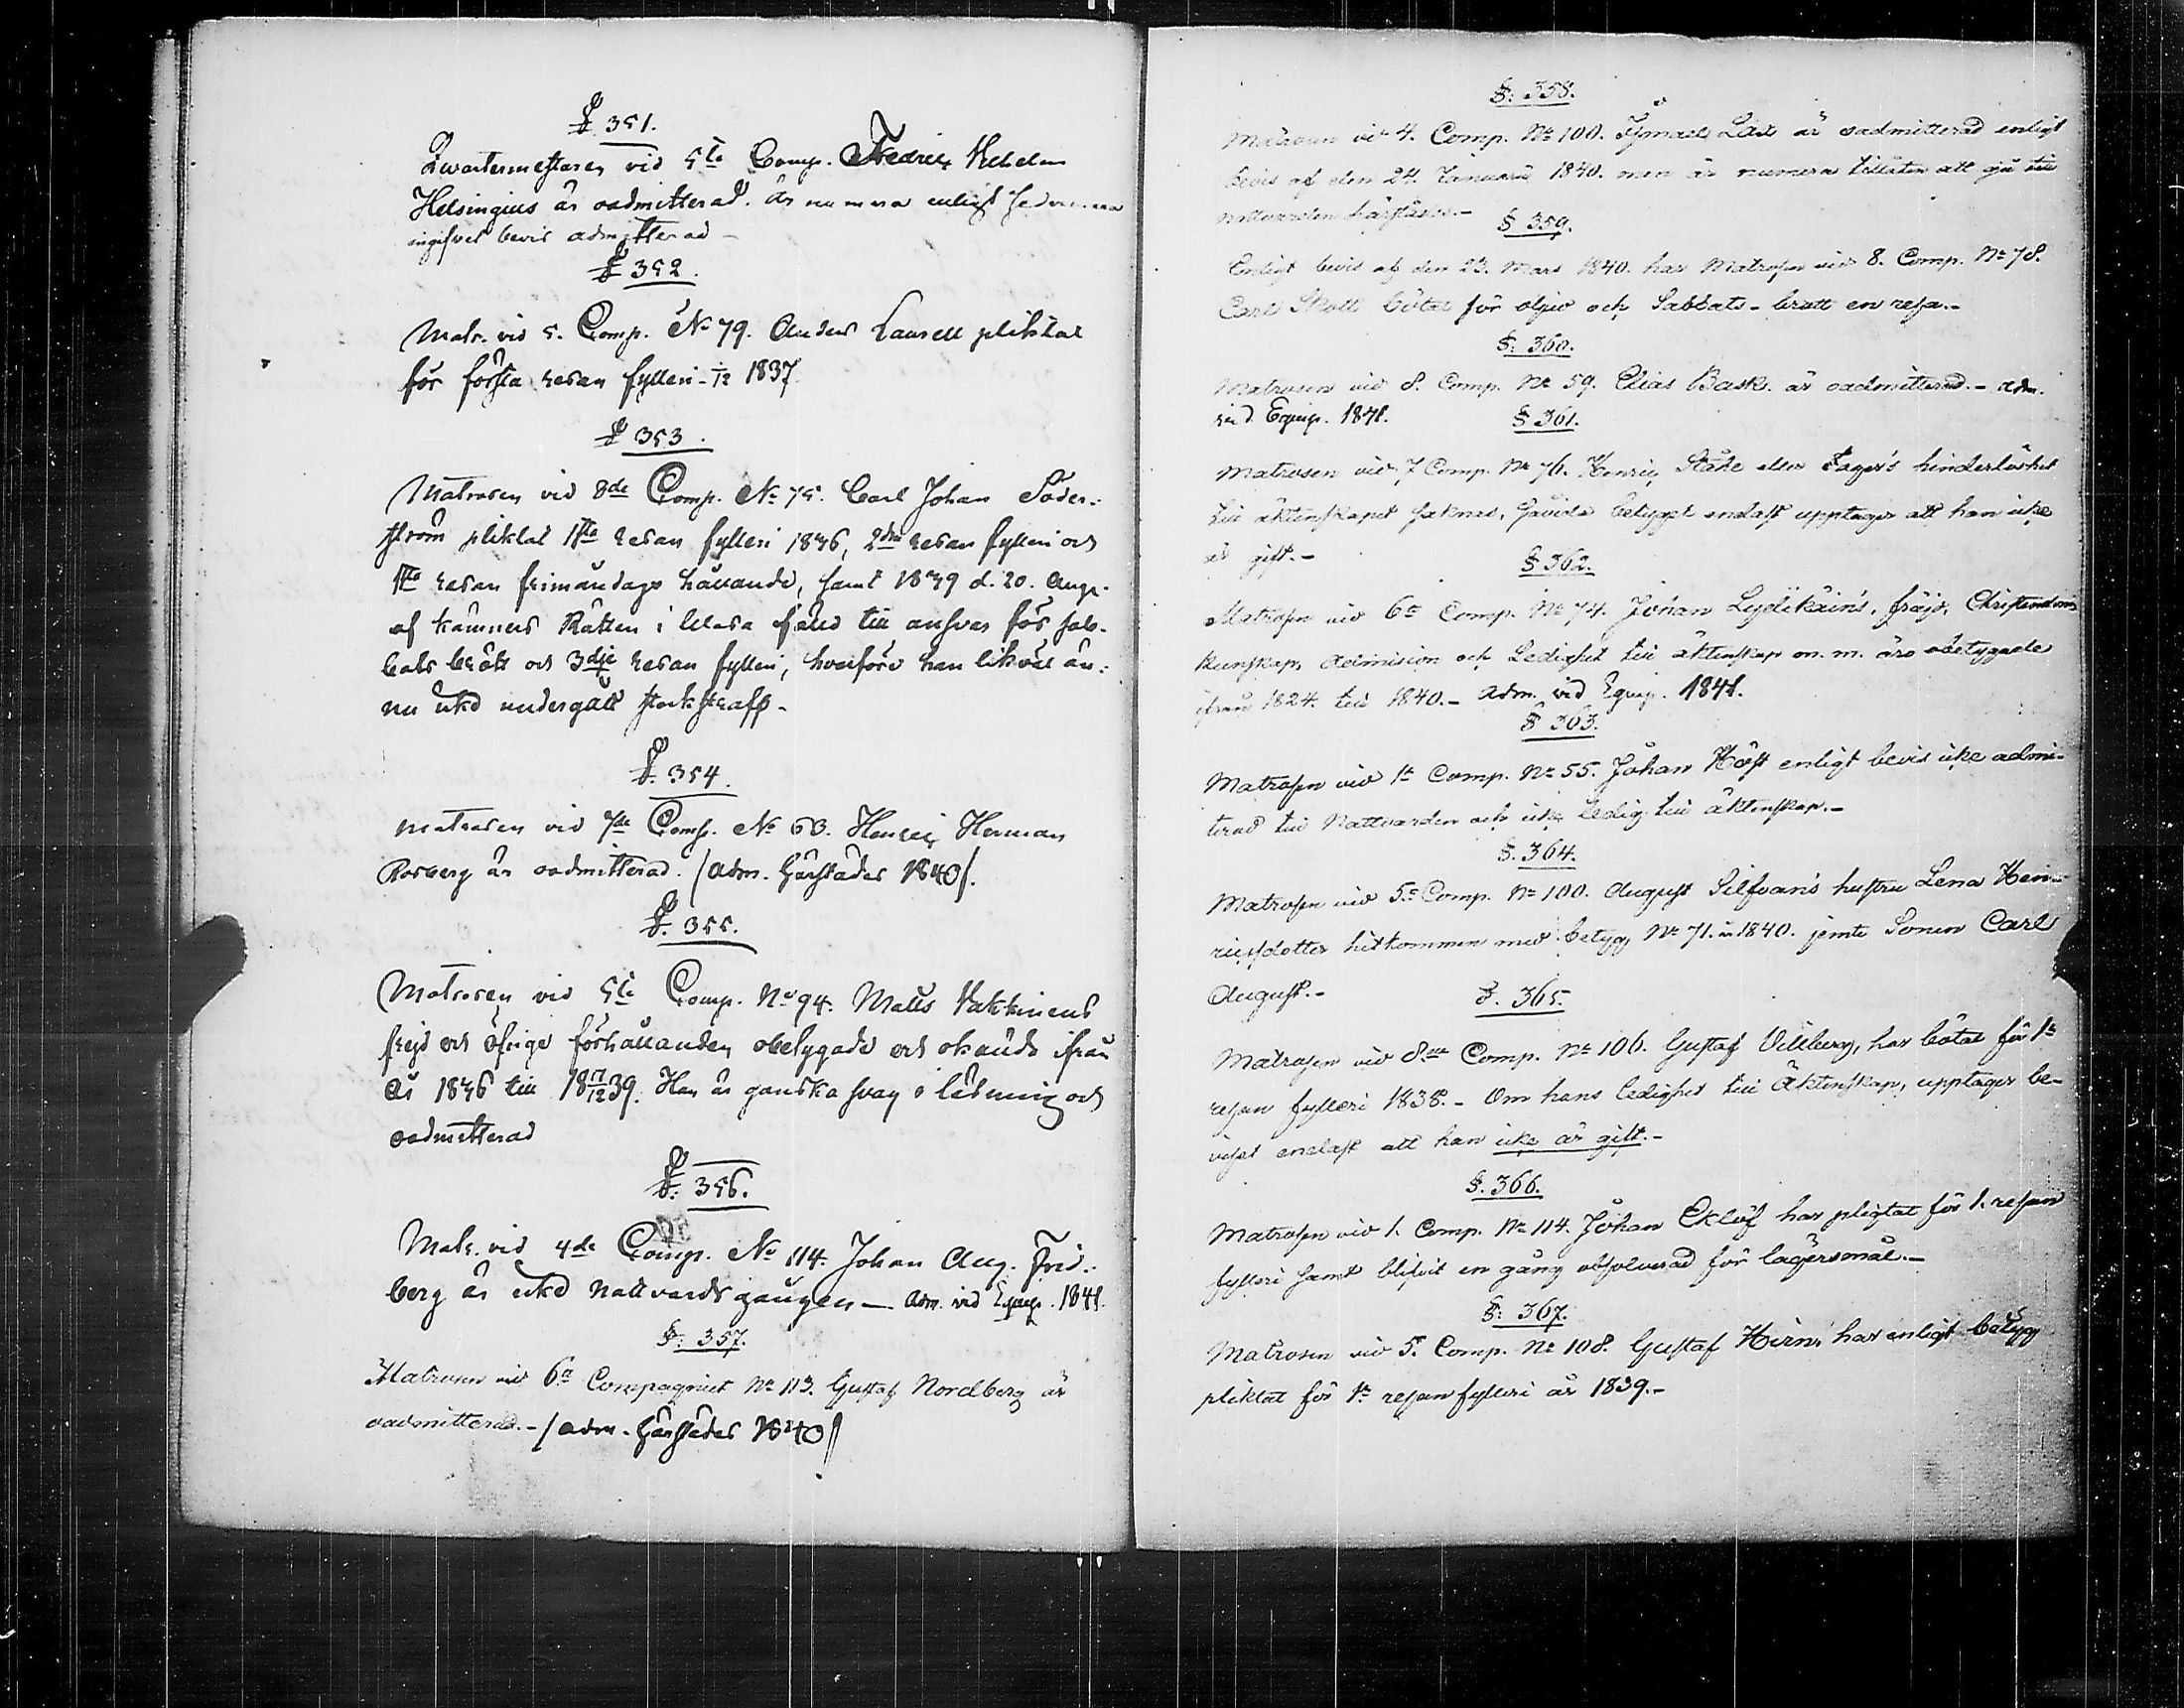 § 351.
Qvartermestaren vid 5te Comp. Fredric Vilhelm
Helsingius är oadmitterad. är numera enligt sedermera
ingifvet bevis admitterad –
§ 352.
Matr. vid 5. Comp. No 79. Anders Laurell pliktat
för första resan fylleri – 1837
§ 353.
Matrosen vid 8de Comp. No 75. Carl Johan Söder-
ström pliktat 1sta resan fylleri 1836, 2dra resan fylleri och
1sta resan frimåndags hållande, samt 1839 d. 20. Aug.
af Kämners Rätten i Wasa fäld till ansvar för sab-
bats brott och 3dje resan fylleri, hvarföre han likväl än-
nu icke undergått stockstraff –
§. 354.
Matrosen vid 7de Comp. No 63. Henric Herman
Rosberg är oadmitterad. /adm. härstädes 1840/.
§. 355.
Matrosen vid 5te Comp. No 94. Matts Vakkinens
frejd och öfrige förhållanden obetygade och okända ifrån
år 1836 till 18 17/12 39. Han är ganska svag i läsning och
oadmitterad
§: 356.
Matr. vid 4de Comp. No 114. Johan Aug. Frid-
berg är icke nattvardsgången — adm. vid Equip. 1841.
§: 357.
Matrosen vid 6te Compagniet No 113. Gustaf Nordberg är
oadmitterad. – /adm. härstädes 1840/
§: 358.
Matrosen vid 4. Comp. No 100. Ismael Lax är oadmitterad enligt
bevis af den 24. Januarii 1840. men är numera tillåten att gå till
nattvarden härstädes. –
§ 359.
Enligt bevis af den 23. Mars 1840. har Matrosen vid 8. Comp. No 78.
Carl Skott bötat för oljud och Sabbats-brott en resa. –
§: 360.
Matrosen vid 8. Comp. No 59. Elias Bask. är oadmitterad. – adm.
vid Equip. 1841.
§ 361.
Matrosen vid 7 Comp. No 76. Henric Ståhle eller Fager's hinderlöshet
till äktenskapet saknas, havide betyget endast upptager att han icke
är gift. –
§ 362.
Matrosen vid 6te Comp. No 74. Johan Lydikäin's, fräjd, Christendoms
kunskap, admission och Ledighet till äktenskap m. m. äro obetygade
ifrån 1824 till 1840. – adm. vid Equip. 1841.
§ 363.
Matrosen vid 1a Comp. No 55. Johan Höst enligt bevis icke admi-
terad till Nattvarden och icke ledig till äktenskap. –
§. 364.
Matrosen vid 5te Comp. No 100. August Silfvan's hustru Lena Hen-
ricsdotter hitkommen med betyg No 71. år 1840. jemte Sonen Carl
August. –
§. 365.
Matrosen vid 8de Comp. No 106. Gustaf Villberg, har bötat för 1a
resan fylleri 1838. – Om hans ledighet till äktenskap, upptager be-
viset endast att han icke är gift. –
§. 366.
Matrosen vid 1. Comp. No 114. Johan Eklöf har pligtat för 1. resan
fylleri samt blifvit en gång absolverad för lägersmål. –
§: 367.
Matrosen vid 5. Comp. No 108. Gustaf Hirn, har enligt betyg
pliktat för 1a resan fylleri år 1839. –